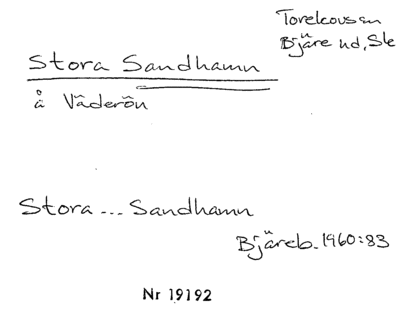 Torekovs sn
Bjäre hd, Sk
Stora Sandhamn
å Väderön
Stora ... Sandhamn
Bjäreb. 1960:83
Nr 19192